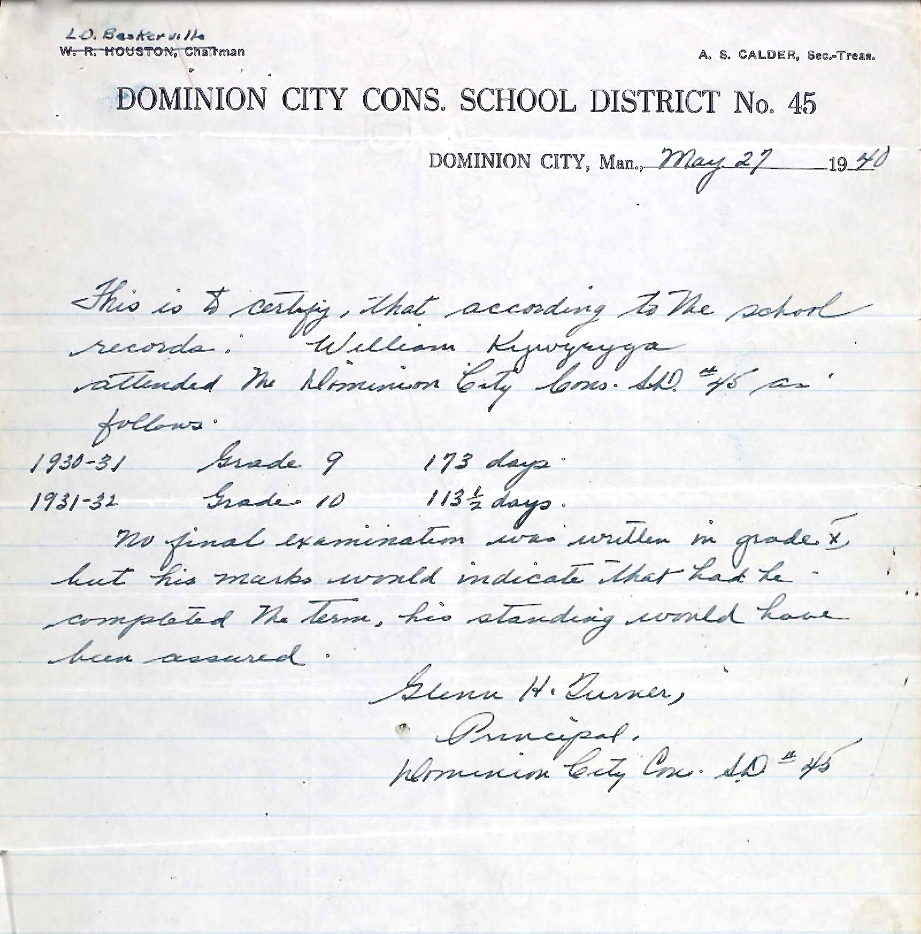 L.O. Baskerville
W. R. HOUSTON, Chairman
A. S. CALDER, Sec.-Treas.
DOMINION CITY CONS. SCHOOL DISTRICT No. 45
DOMINION CITY, Man., May 27 1940
This is to certify, that according to the school
records: William
attended the Dominion City Cons. S.D. #45 as
follows.
1930-31 Grade 9 173 days.
1931-32 Grade 10 113 1/2 days.
No final examination was written in grade X,
but his marks would indicate that had he
completed the term, his standing would have
been assured.
Glenn H. Turner,
Principal.
Dominion City Con. S.D #45